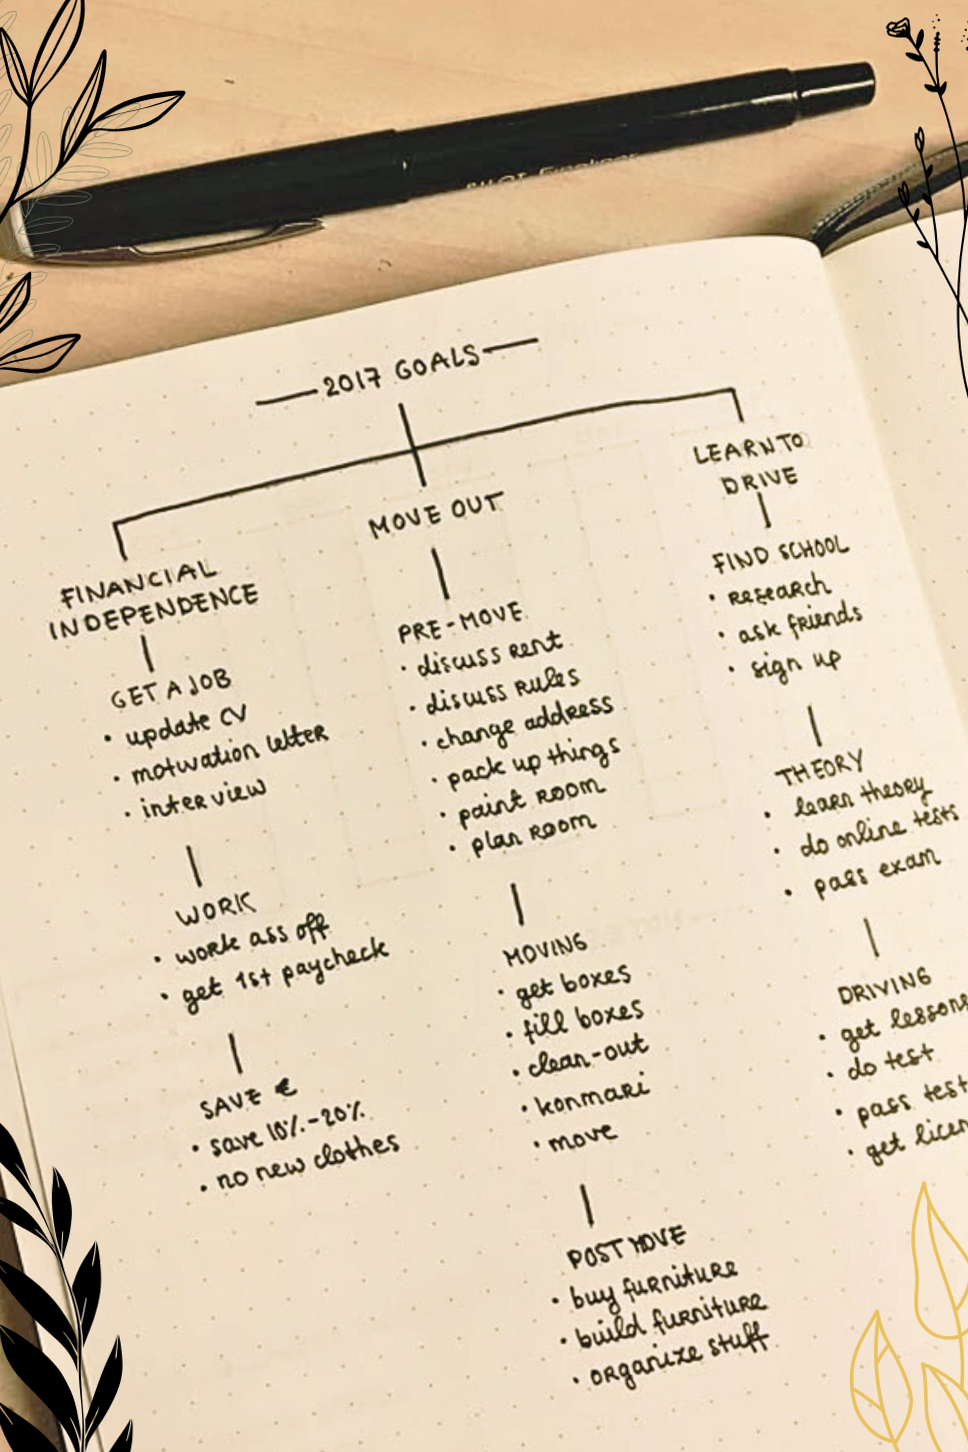 PILOT
2017 GOALS
FINANCIAL
INDEPENDENCE
GET A JOB
• update CV
• motivation letter
• interview
WORK
• work ass off
• get 1st paycheck
SAVE €
• save 10%-20%
• no new clothes
MOVE OUT
PRE-MOVE
• discuss rent
• discuss rules
• change address
• pack up things
• paint room
• plan room
MOVING
• get boxes
• fill boxes
• clean-out
• konmari
• move
POST MOVE
• buy furniture
• build furniture
• organize stuff
LEARN TO
DRIVE
FIND SCHOOL
• research
• ask friends
• sign up
THEORY
• learn theory
• do online tests
• pass exam
DRIVING
• get lessons
• do test
• pass test
• get licen